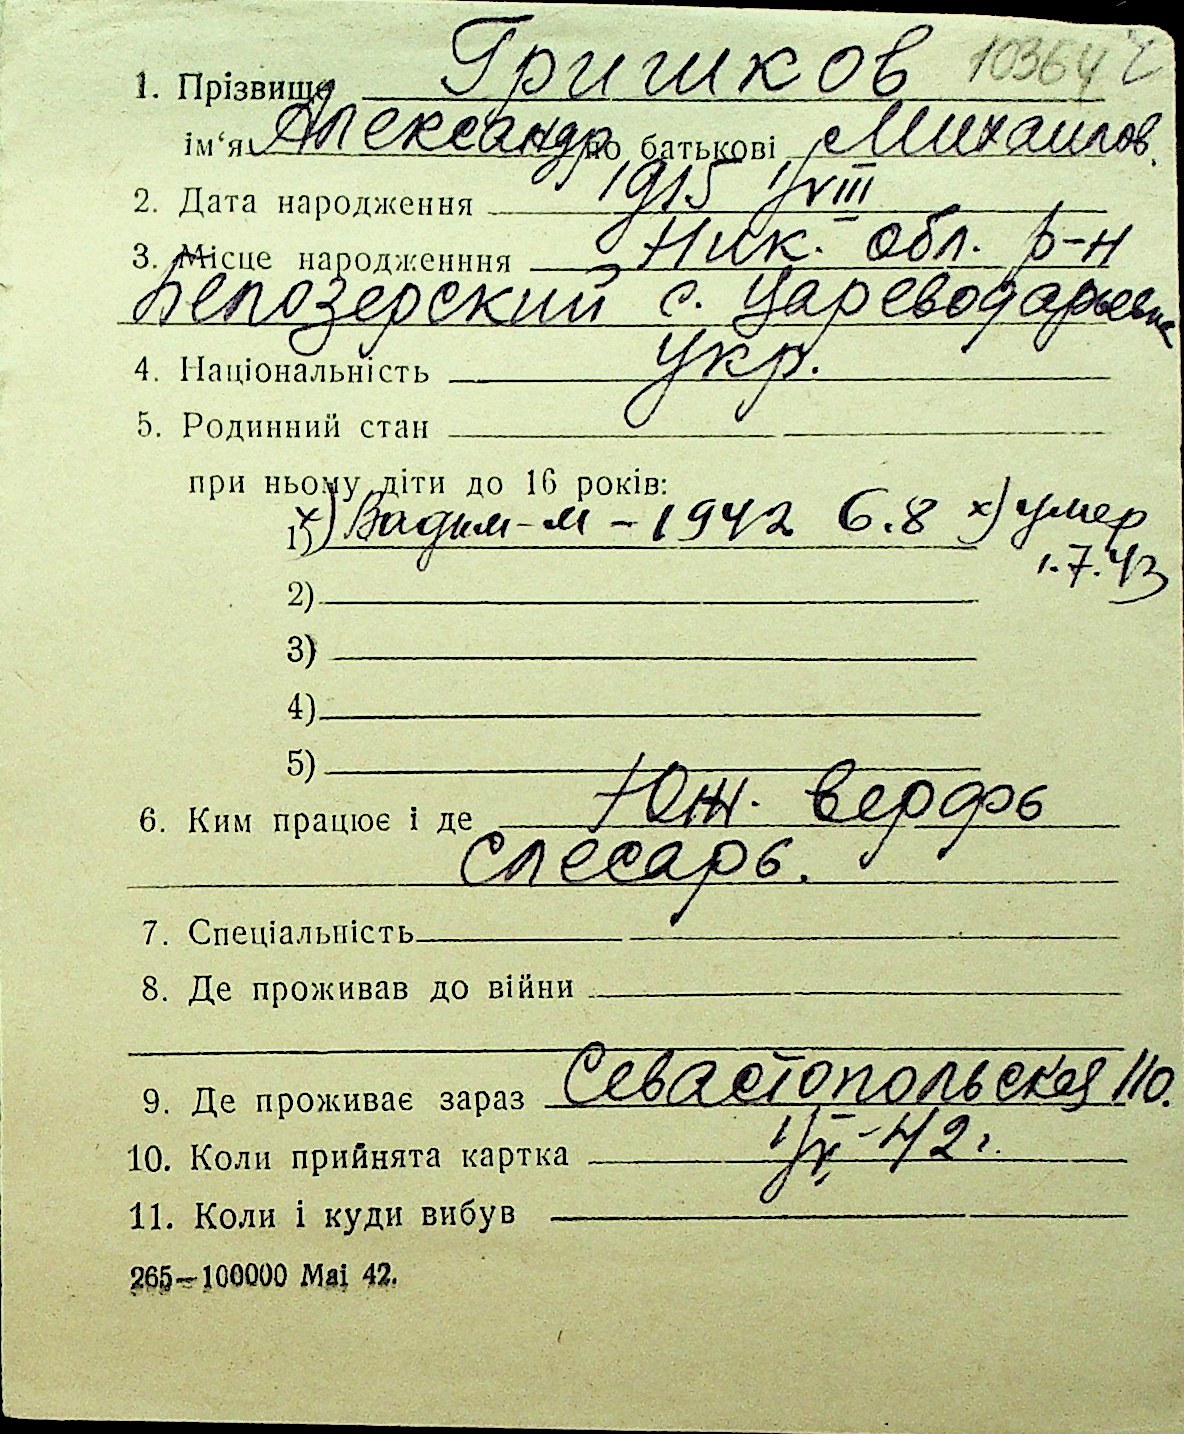 1. Прізвище Гришков 10364
ім‘я Александр по батькові Михаилов.
2. Дата народження 1915 1/VIII
3. Місце народженння Ник. обл. р-н
Белозерский с. Цареводаровка
4. Національність укр.
5. Родинний стан
при ньому діти до 16 років:
1) х) Вадим-м - 1942 6.8 х) умер
1.7.43
2)
3)
4)
5)
6. Ким працює і де Юж. верфь
слесарь.
7. Спеціальність
8. Де проживав до війни
9. Де проживає зараз Севастопольская 110.
10. Коли прийнята картка 1/X-42 г.
11. Коли і куди вибув
265—100000 Mai 42.